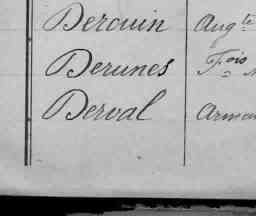 Derouin Aug^te
Derunes F^ois
Derval Arman